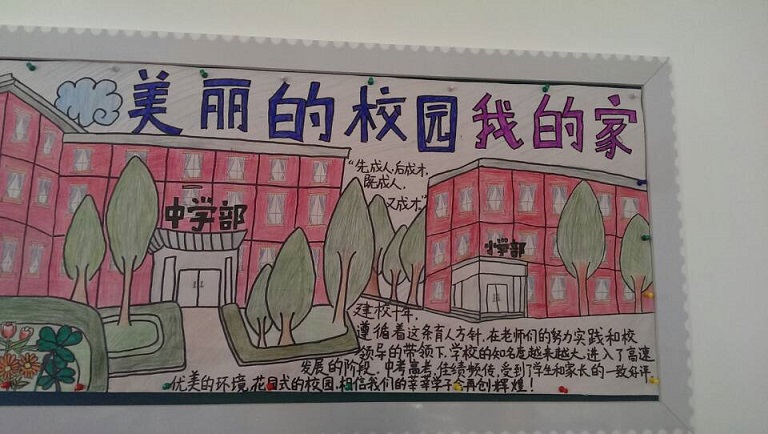 美丽的校园我的家
"先成人,后成才,
既成人,
又成才"
中学部
小学部
建校十年,
遵循着这条育人方针,在老师们的努力实践和校
领导的带领下,学校的知名度越来越大,进入了高速
发展的阶段,中考高考,佳绩频传,受到了学生和家长的一致好评.
优美的环境,花园式的校园,相信我们的莘莘学子会再创辉煌!